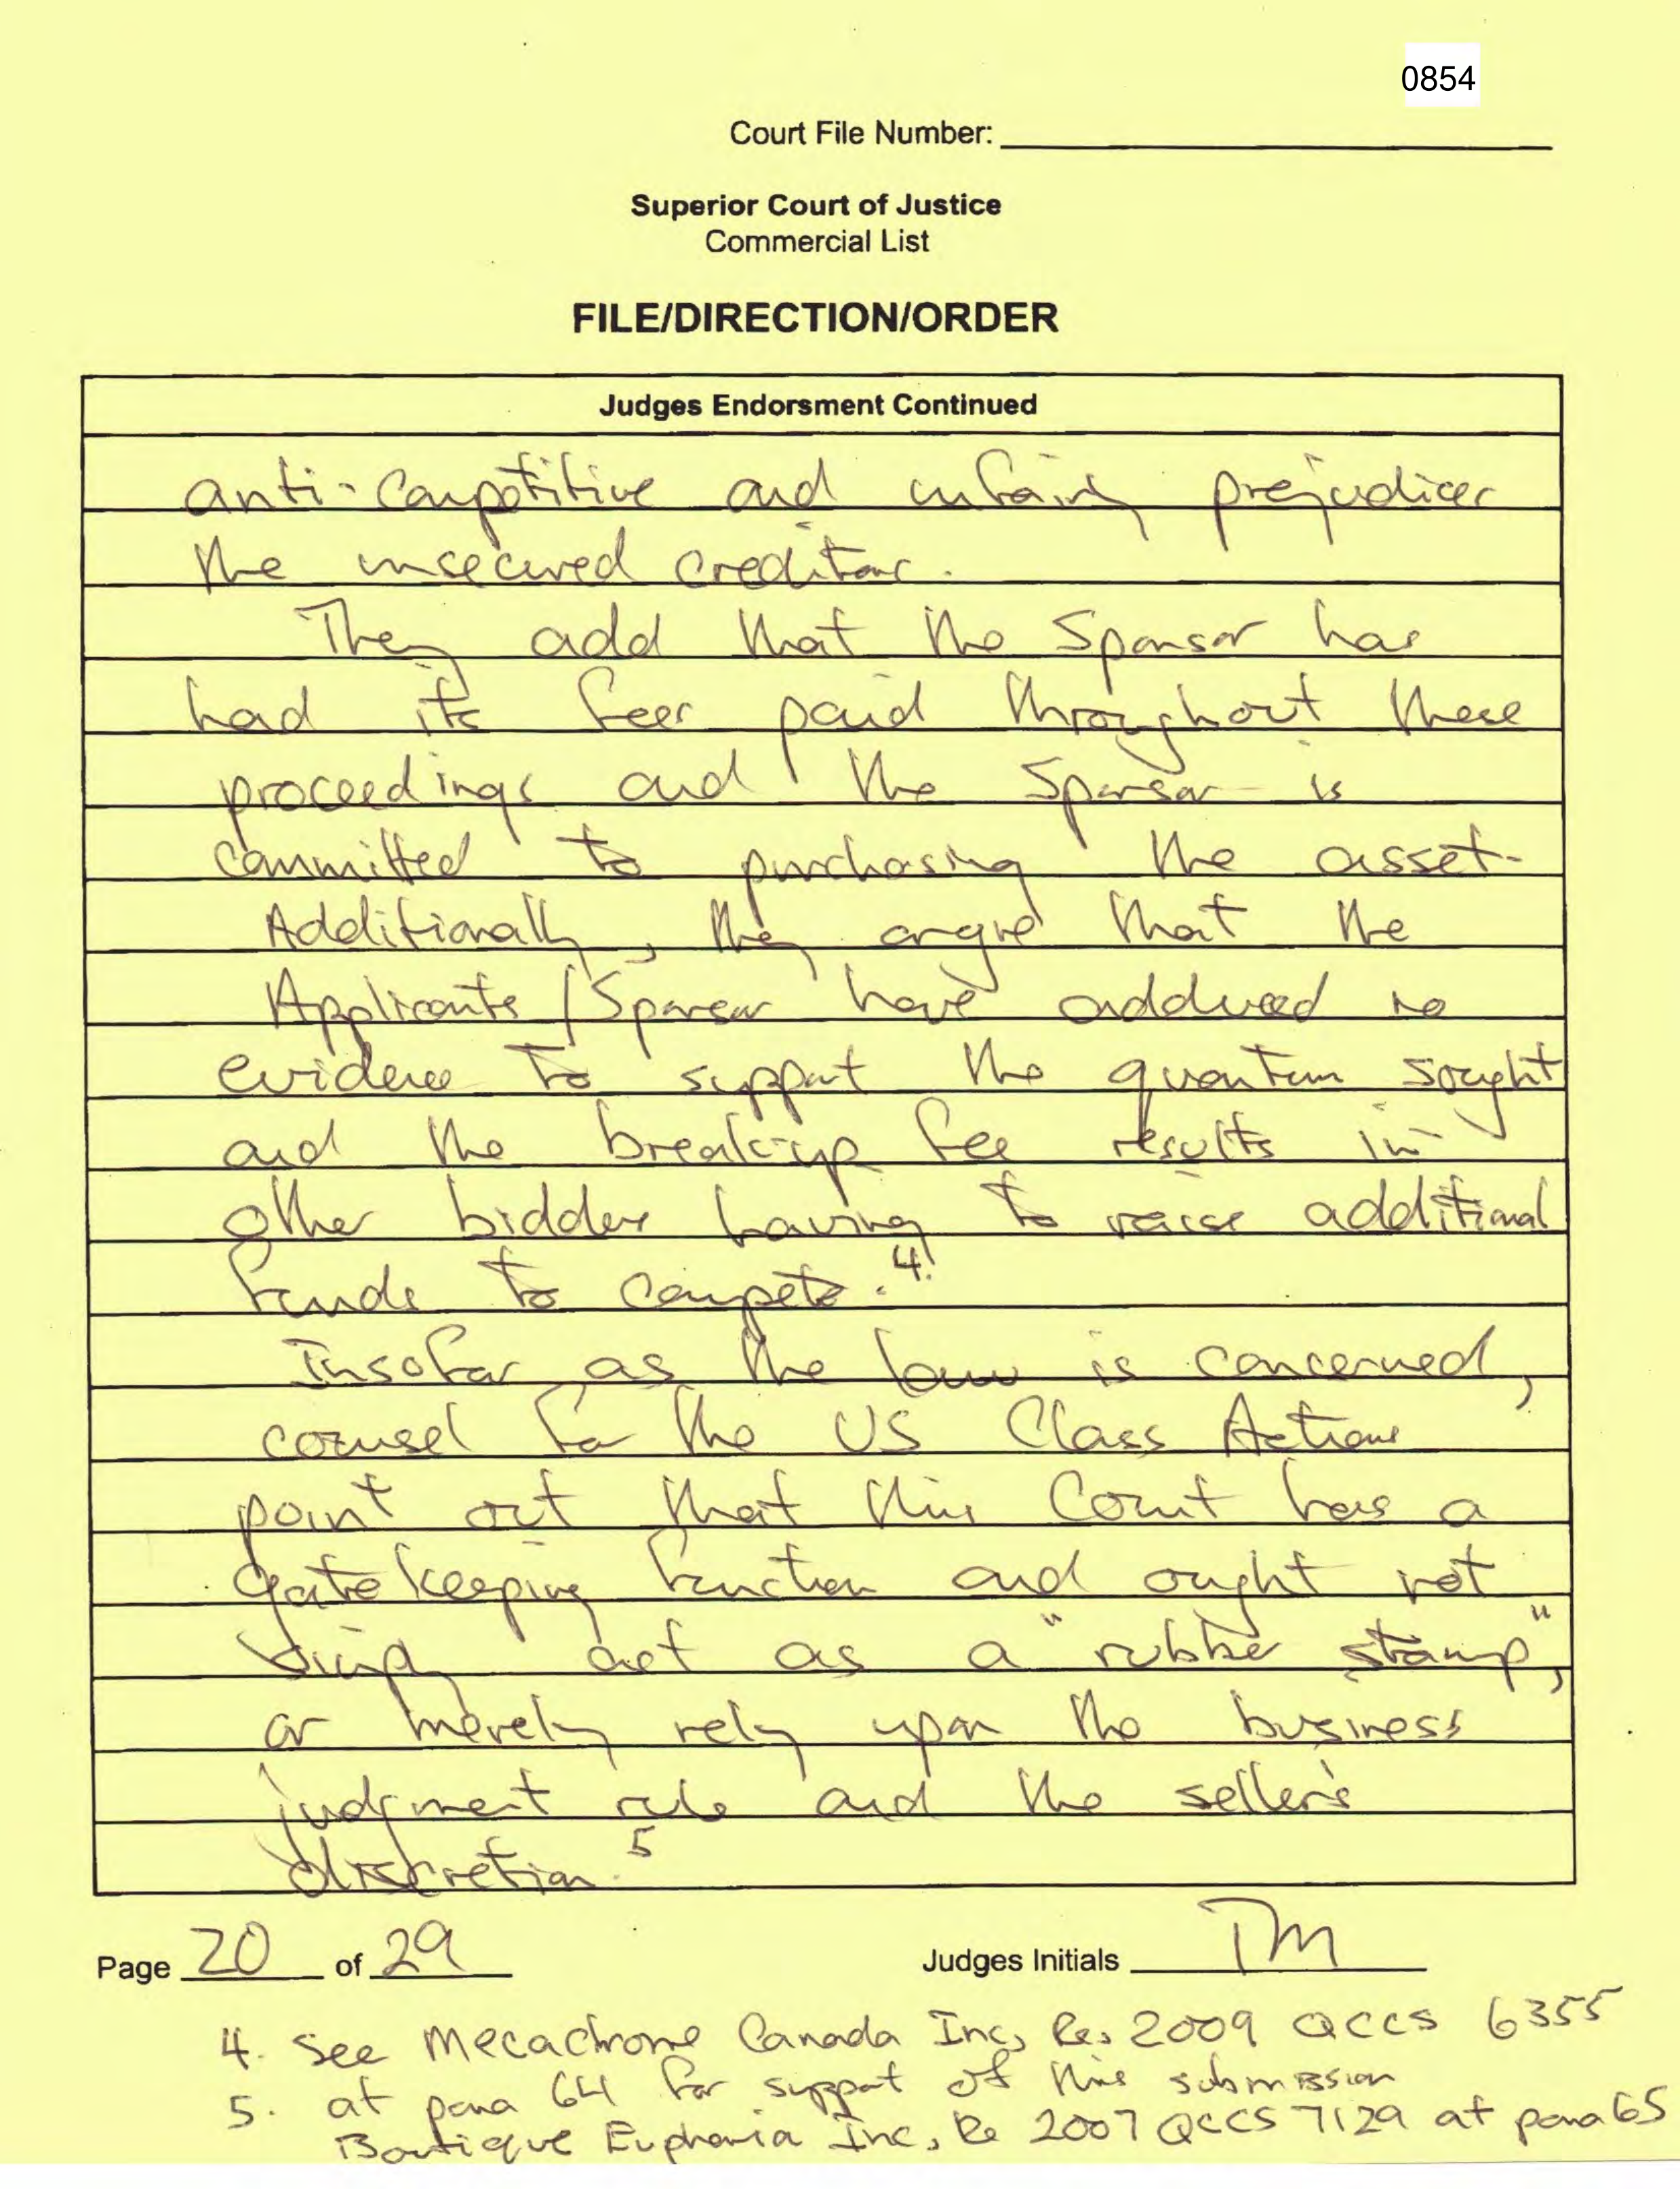 0854
Court File Number:
Superior Court of Justice
Commercial List
FILE/DIRECTION/ORDER
Judges Endorsment Continued
anti-competitive and unfairly prejudices
the unsecured creditors.
They add that the Sponsor has
had its fees paid throughout these
proceedings and the Sponsor is
committed to purchasing the asset.
Additionally, they argue that the
Applicants/Sponsor have adduced no
evidence to support the quantum sought
and the break-up fee results in
other bidders having to raise additional
funds to compete.4.
Insofar as the law is concerned,
counsel for the US Class Actions
point out that this Court has a
gatekeeping function and ought not
simply act as a "rubber stamp",
or merely rely upon the business
judgment rule and the seller's
discretion.5
Page 20 of 29
Judges Initials TM
4. See Mecachrome Canada Inc, Re, 2009 QCCS 6355
at para 64 for support of this submission
5. Boutique Euphoria Inc, Re 2007 QCCS 7129 at para 65